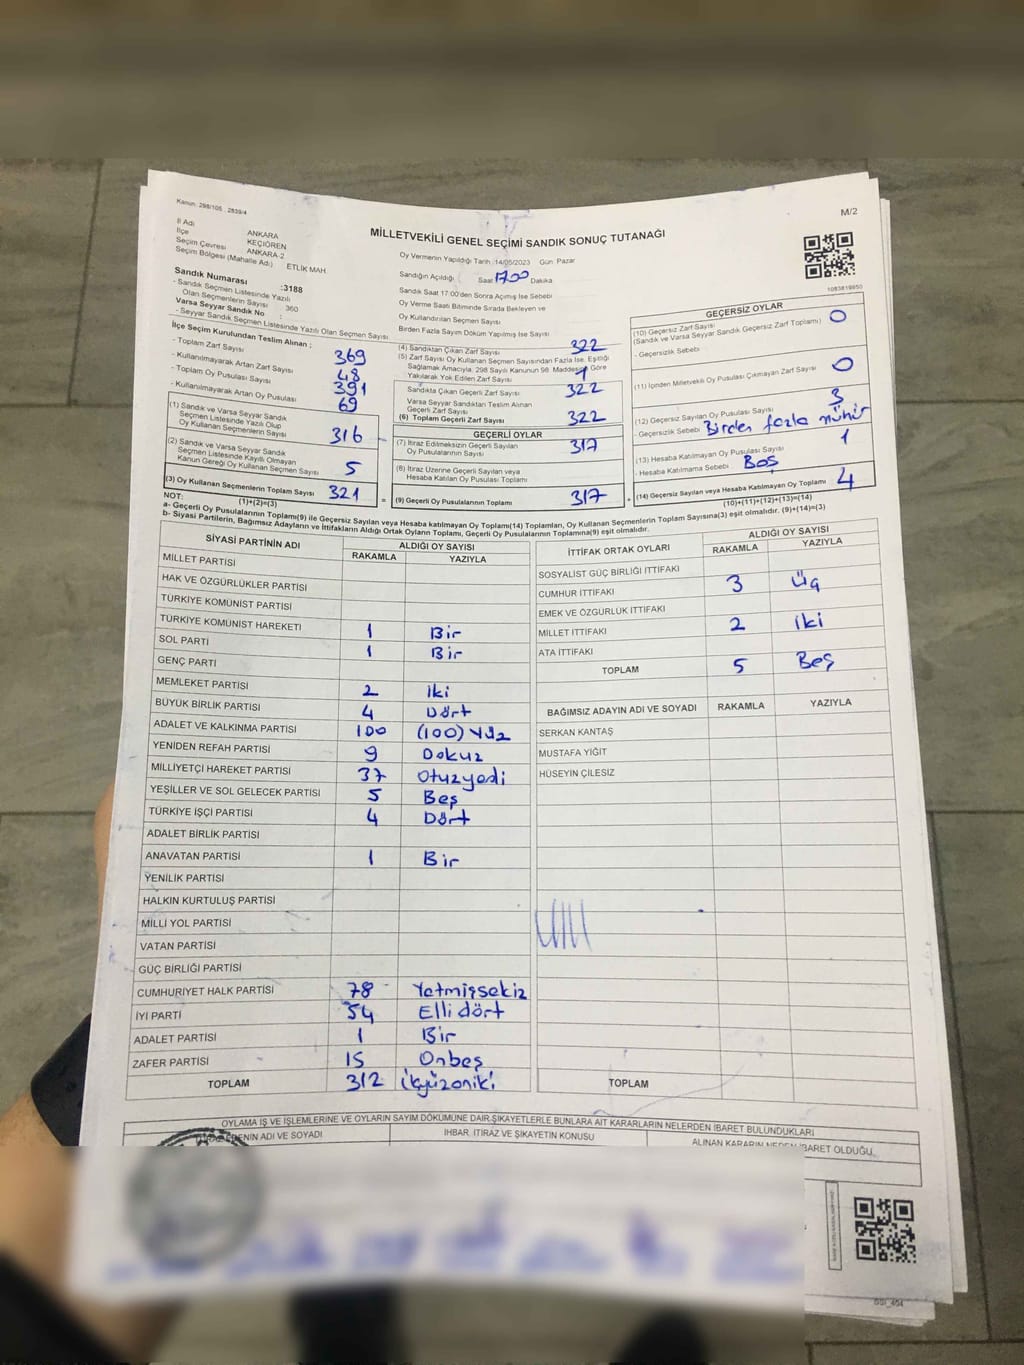 Kanun: 298/105 , 2839/4
M/2
MİLLETVEKİLİ GENEL SEÇİMİ SANDIK SONUÇ TUTANAĞI
İl Adı ANKARA
İlçe KEÇİÖREN
Seçim Çevresi ANKARA-2
Seçim Bölgesi (Mahalle Adı) ETLİK MAH.
Oy Vermenin Yapıldığı Tarih :14/05/2023 Gün Pazar
Sandığın Açıldığı Saat 1700 Dakika
Sandık Saat 17:00'den Sonra Açımış İse Sebebi
Oy Verme Saati Bitiminde Sırada Bekleyen ve
Oy Kullandırılan Seçmen Sayısı
Birden Fazla Sayım Döküm Yapılmış İse Sayısı
1083819850
Sandık Numarası :3188
- Sandık Seçmen Listesinde Yazılı
Olan Seçmenlerin Sayısı 360
Varsa Seyyar Sandık No :
- Seyyar Sandık Seçmen Listesinde Yazılı Olan Seçmen Sayısı
İlçe Seçim Kurulundan Teslim Alınan ;
- Toplam Zarf Sayısı 369
- Kullanılmayarak Artan Zarf Sayısı 48
- Toplam Oy Pusulası Sayısı 391
- Kullanılmayarak Artan Oy Pusulası 69
(1) Sandık ve Varsa Seyyar Sandık
Seçmen Listesinde Yazılı Olup
Oy Kullanan Seçmenlerin Sayısı 316
(2) Sandık ve Varsa Seyyar Sandık
Seçmen Listesinde Kayıtlı Olmayan
Kanun Gereği Oy Kullanan Seçmen Sayısı 5
(3) Oy Kullanan Seçmenlerin Toplam Sayısı 321
(1)+(2)=(3)
(4) Sandıktan Çıkan Zarf Sayısı 322
(5) Zarf Sayısı Oy Kullanan Seçmen Sayısından Fazla İse, Eşitliği
Sağlamak Amacıyla, 298 Sayılı Kanunun 98. Maddesine Göre
Yakılarak Yok Edilen Zarf Sayısı 1
Sandıkta Çıkan Geçerli Zarf Sayısı 322
Varsa Seyyar Sandıktan Teslim Alınan
Geçerli Zarf Sayısı
(6) Toplam Geçerli Zarf Sayısı 322
GEÇERLİ OYLAR
(7) İtiraz Edilmeksizin Geçerli Sayılan
Oy Pusulasının Sayısı 317
(8) İtiraz Üzerine Geçerli Sayılan veya
Hesaba Katılan Oy Pusulası Toplamı
= (9) Geçerli Oy Pusulalarının Toplamı 317
GEÇERSİZ OYLAR
(10) Geçersiz Zarf Sayısı 0
(Sandık ve Varsa Seyyar Sandık Geçersiz Zarf Toplamı)
- Geçersizlik Sebebi
(11) İçinden Milletvekili Oy Pusulası Çıkmayan Zarf Sayısı 0
(12) Geçersiz Sayılan Oy Pusulası Sayısı 3
- Geçersizlik Sebebi Birden fazla mühür
(13) Hesaba Katılmayan Oy Pusulası Sayısı 1
- Hesaba Katılmama Sebebi Boş
+ (14) Geçersiz Sayılan veya Hesaba Katılmayan Oy Toplamı 4
(10)+(11)+(12)+(13)=(14)
NOT:
a- Geçerli Oy Pusulalarının Toplamı(9) ile Geçersiz Sayılan veya Hesaba katılmayan Oy Toplamı(14) Toplamları, Oy Kullanan Seçmenlerin Toplam Sayısına(3) eşit olmalıdır. (9)+(14)=(3)
b- Siyasi Partilerin, Bağımsız Adayların ve İttifakların Aldığı Ortak Oyların Toplamı, Geçerli Oy Pusulalarının Toplamına(9) eşit olmalıdır.
SİYASİ PARTİNİN ADI ALDIĞI OY SAYISI
RAKAMLA YAZIYLA
MİLLET PARTİSİ
HAK VE ÖZGÜRLÜKLER PARTİSİ
TÜRKİYE KOMÜNİST PARTİSİ
TÜRKİYE KOMÜNİST HAREKETİ 1 Bir
SOL PARTİ 1 Bir
GENÇ PARTİ
MEMLEKET PARTİSİ 2 İki
BÜYÜK BİRLİK PARTİSİ 4 Dört
ADALET VE KALKINMA PARTİSİ 100 (100) Yüz
YENİDEN REFAH PARTİSİ 9 Dokuz
MİLLİYETÇİ HAREKET PARTİSİ 37 Otuzyedi
YEŞİLLER VE SOL GELECEK PARTİSİ 5 Beş
TÜRKİYE İŞÇİ PARTİSİ 4 Dört
ADALET BİRLİK PARTİSİ
ANAVATAN PARTİSİ 1 Bir
YENİLİK PARTİSİ
HALKIN KURTULUŞ PARTİSİ
MİLLİ YOL PARTİSİ
VATAN PARTİSİ
GÜÇ BİRLİĞİ PARTİSİ
CUMHURİYET HALK PARTİSİ 78 Yetmişsekiz
İYİ PARTİ 54 Elli dört
ADALET PARTİSİ 1 Bir
ZAFER PARTİSİ 15 Onbeş
TOPLAM 312
İTTİFAK ORTAK OYLARI ALDIĞI OY SAYISI
RAKAMLA YAZIYLA
SOSYALİST GÜÇ BİRLİĞİ İTTİFAKI
CUMHUR İTTİFAKI 3 Üç
EMEK VE ÖZGÜRLÜK İTTİFAKI
MİLLET İTTİFAKI 2 İki
ATA İTTİFAKI
TOPLAM 5 Beş
BAĞIMSIZ ADAYIN ADI VE SOYADI RAKAMLA YAZIYLA
SERKAN KANTAŞ
MUSTAFA YİĞİT
HÜSEYİN ÇİLESİZ
TOPLAM
OYLAMA İŞ VE İŞLEMLERİNE VE OYLARIN SAYIM DÖKÜMÜNE DAİR ŞİKAYETLERLE BUNLARA AİT KARARLARIN NELERDEN İBARET BULUNDUKLARI
ADI VE SOYADI İHBAR, İTİRAZ VE ŞİKAYETİN KONUSU ALINAN KARARIN NEDEN İBARET OLDUĞU